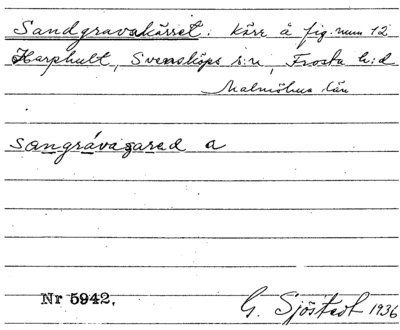 Sandgravakärret: kärr å fig. num 12
Harphult, Svensköps s:n, Frosta h:d
Malmöhus län
sangrávazared a
Nr 5942.
G. Sjöstedt 1936